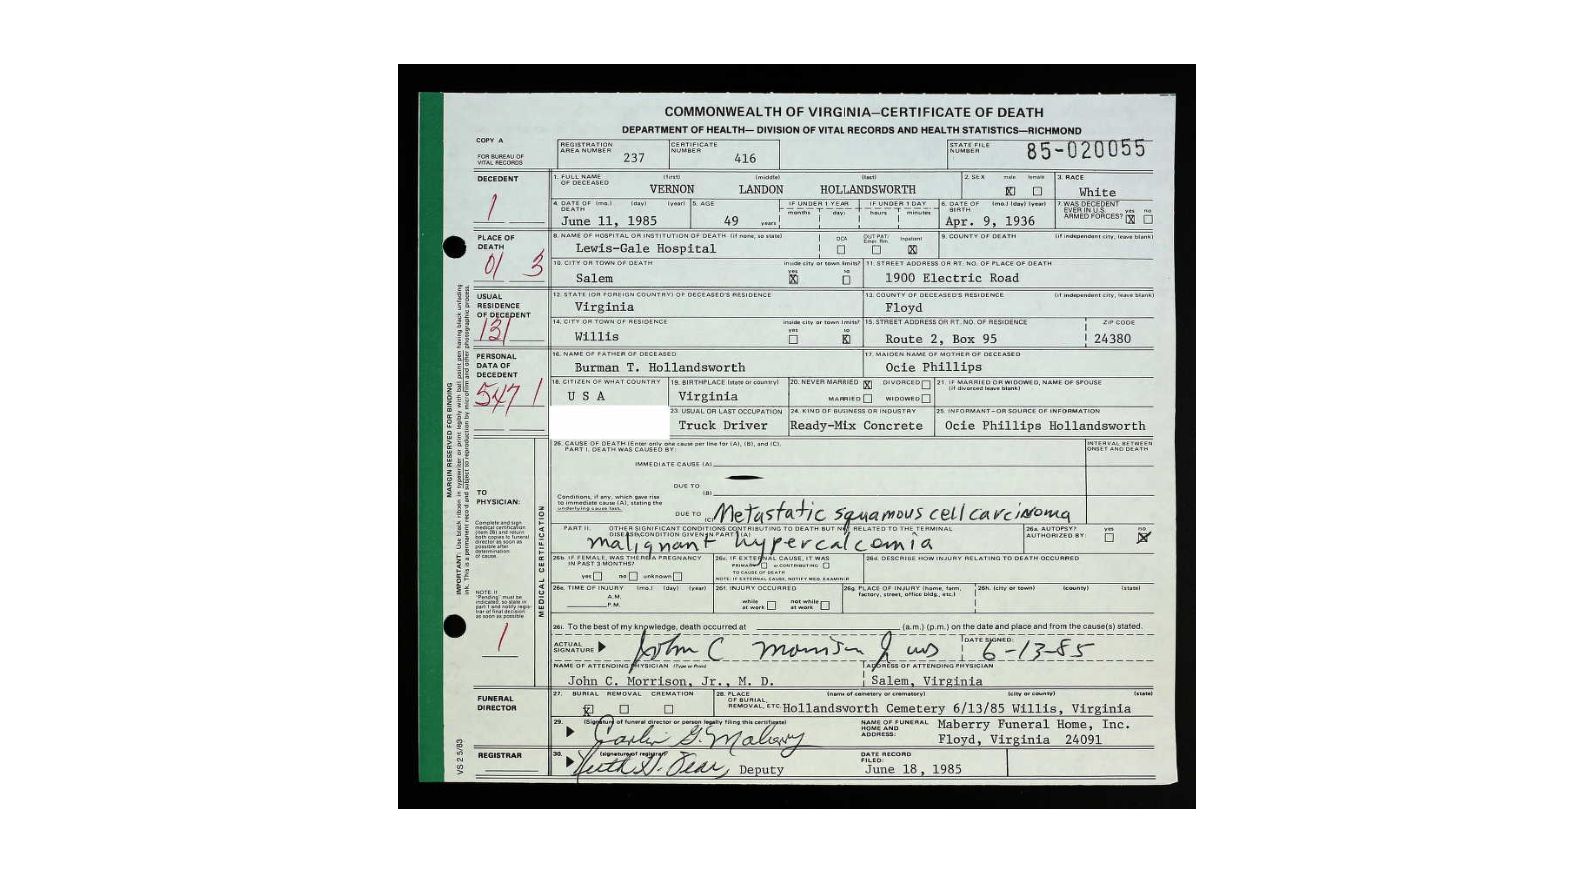 COMMONWEALTH OF VIRGINIA—CERTIFICATE OF DEATH
DEPARTMENT OF HEALTH— DIVISION OF VITAL RECORDS AND HEALTH STATISTICS—RICHMOND
COPY A
FOR BUREAU OF VITAL RECORDS
REGISTRATION AREA NUMBER 237
CERTIFICATE NUMBER 416
STATE FILE NUMBER 85-020055
DECEDENT
1
1. FULL NAME OF DECEASED (first) (middle) (last)
VERNON LANDON HOLLANDSWORTH
2. SEX male female X
3. RACE White
4. DATE OF DEATH (mo.) (day) (year) June 11, 1985
5. AGE 49 years
IF UNDER 1 YEAR months days
IF UNDER 1 DAY hours minutes
6. DATE OF BIRTH (mo.) (day) (year) Apr. 9, 1936
7. WAS DECEDENT EVER IN U.S. ARMED FORCES? yes no X
PLACE OF DEATH
01 3
8. NAME OF HOSPITAL OR INSTITUTION OF DEATH (if none, so state)
Lewis-Gale Hospital
DOA OUT PAT/ Emer. Rm. Inpatient X
9. COUNTY OF DEATH (if independent city, leave blank)
10. CITY OR TOWN OF DEATH inside city or town limits? yes no
Salem X
11. STREET ADDRESS OR RT. NO. OF PLACE OF DEATH
1900 Electric Road
USUAL RESIDENCE OF DECEDENT
131
12. STATE (OR FOREIGN COUNTRY) OF DECEASED'S RESIDENCE
Virginia
13. COUNTY OF DECEASED'S RESIDENCE (if independent city, leave blank)
Floyd
14. CITY OR TOWN OF RESIDENCE inside city or town limits? yes no
Willis X
15. STREET ADDRESS OR RT. NO. OF RESIDENCE ZIP CODE
Route 2, Box 95 24380
PERSONAL DATA OF DECEDENT
547 1
16. NAME OF FATHER OF DECEASED
Burman T. Hollandsworth
17. MAIDEN NAME OF MOTHER OF DECEASED
Ocie Phillips
18. CITIZEN OF WHAT COUNTRY
U S A
19. BIRTHPLACE (state or country)
Virginia
20. NEVER MARRIED X DIVORCED
MARRIED WIDOWED
21. IF MARRIED OR WIDOWED, NAME OF SPOUSE (if divorced leave blank)
23. USUAL OR LAST OCCUPATION
Truck Driver
24. KIND OF BUSINESS OR INDUSTRY
Ready-Mix Concrete
25. INFORMANT—OR SOURCE OF INFORMATION
Ocie Phillips Hollandsworth
MARGIN RESERVED FOR BINDING
MEDICAL CERTIFICATION
TO PHYSICIAN:
Complete and sign medical certification (item 26) and return both copies to funeral director as soon as possible after determination of cause.
NOTE: If "Pending" must be indicated, so state in part I and notify registrar of final decision as soon as possible
1
26. CAUSE OF DEATH (Enter only one cause per line for (A), (B), and (C).)
PART I. DEATH WAS CAUSED BY:
INTERVAL BETWEEN ONSET AND DEATH
IMMEDIATE CAUSE (A)
DUE TO (B)
Conditions, if any, which gave rise to immediate cause (A), stating the underlying cause last.
DUE TO (C) Metastatic squamous cell carcinoma
PART II. OTHER SIGNIFICANT CONDITIONS CONTRIBUTING TO DEATH BUT NOT RELATED TO THE TERMINAL DISEASE CONDITION GIVEN IN PART I (A)
malignant hypercalcemia
26a. AUTOPSY? AUTHORIZED BY: yes no X
26b. IF FEMALE, WAS THERE A PREGNANCY IN PAST 3 MONTHS?
yes no unknown
26c. IF EXTERNAL CAUSE, IT WAS
PRIMARY or CONTRIBUTING
TO CAUSE OF DEATH
NOTE: IF EXTERNAL CAUSE, NOTIFY MED. EXAMINER
26d. DESCRIBE HOW INJURY RELATING TO DEATH OCCURRED
26e. TIME OF INJURY (mo.) (day) (year)
A.M.
P.M.
26f. INJURY OCCURRED
while at work not while at work
26g. PLACE OF INJURY (home, farm, factory, street, office bldg., etc.)
26h. (city or town) (county) (state)
26i. To the best of my knowledge, death occurred at (a.m.) (p.m.) on the date and place and from the cause(s) stated.
ACTUAL SIGNATURE John C Morrison Jr MD
DATE SIGNED: 6-13-85
NAME OF ATTENDING PHYSICIAN (Type or Print)
John C. Morrison, Jr., M. D.
ADDRESS OF ATTENDING PHYSICIAN
Salem, Virginia
FUNERAL DIRECTOR
27. BURIAL REMOVAL CREMATION
X
28. PLACE OF BURIAL, REMOVAL, ETC. (name of cemetery or crematory) (city or county) (state)
Hollandsworth Cemetery 6/13/85 Willis, Virginia
29. (Signature of funeral director or person legally filing this certificate)
NAME OF FUNERAL HOME AND ADDRESS:
Maberry Funeral Home, Inc.
Floyd, Virginia 24091
REGISTRAR
30. (signature of registrar)
Deputy
DATE RECORD FILED:
June 18, 1985
VS 2 5/83